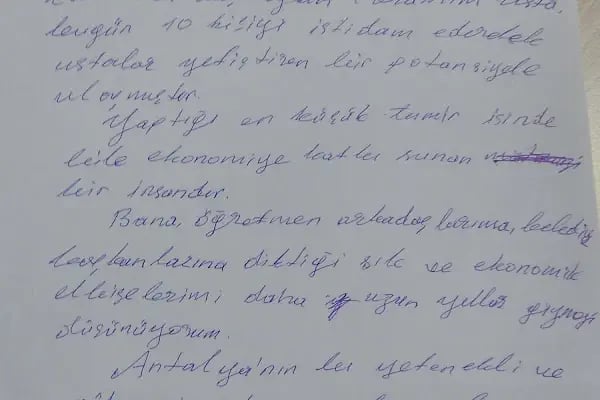 bugün 10 kişiyi istidam ederdek
ustalar yetiştiren bir potansiyele
ulaşmıştır.
Yaptığı en küçük tamir işinde
bile ekonomiye katkı sunan
bir insandır.
Bana, öğretmen arkadaşlarıma, belediye
başkanlarına diktiği şık ve ekonomik
elbiselerimi daha uzun yıllar giymeyi
düşünüyorum.
Antalya'nın bu yetenekli ve